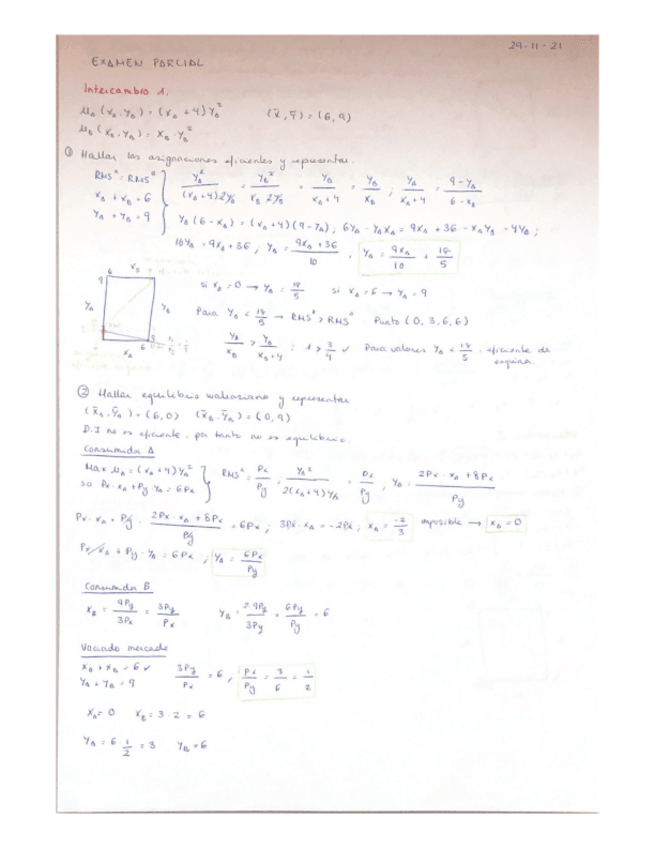 29-11-21
EXAMEN PARCIAL
Intercambio 1.
μA (xA, yA) = (xA + 4) yA² (x̄, ȳ) = (6, 9)
μB (xB, yB) = xB · yB²
① Hallar las asignaciones eficientes y representar.
RMSᴬ = RMSᴮ
xA + xB = 6
yA + yB = 9
yA² / (xA+4)2yA = yB² / xB 2yB = yA / xA+4 = yB / xB ; yA / xA+4 = 9 - yA / 6 - xA
yA (6 - xA) = (xA + 4)(9 - yA) ; 6yA - yA xA = 9xA + 36 - xA yA - 4yA ;
10yA = 9xA + 36 ; yA = 9xA + 36 / 10 , yA = 9xA / 10 + 18 / 5
si xA = 0 → yA = 18/5 si xA = 6 → yA = 9
Para yA < 18/5 → RMSᴮ > RMSᴬ Punto (0, 3, 6, 6)
yB / xB > yA / xA+4 ; 1 > 3/4 ✓ Para valores yA < 18/5 eficiente de esquina.
② Hallar equilibrio walrasiano y representar
(x̄A, ȳA) = (6, 0) (x̄B, ȳB) = (0, 9)
D.I no es eficiente, por tanto no es equilibrio.
Consumidor A
Max μA = (xA + 4) yA²
so Px · xA + Py · yA = 6Px
RMSᴬ = Px / Py ; yA² / 2(xA+4) yA = Px / Py , yA = 2Px · xA + 8Px / Py
Px · xA + Py · 2Px · xA + 8Px / Py = 6Px ; 3Px · xA = -2Px ; xA = -2/3 imposible → xA = 0
Px · xA + Py · yA = 6Px ; yA = 6Px / Py
Consumidor B
xB = 9Py / 3Px = 3Py / Px yB = 2·9Py / 3Py = 6Py / Py = 6
Vaciado mercado
xA + xB = 6 ✓
yA + yB = 9
3Py / Px = 6 , Px / Py = 3 / 6 = 1 / 2
xA = 0 xB = 3 · 2 = 6
yA = 6 1/2 = 3 yB = 6